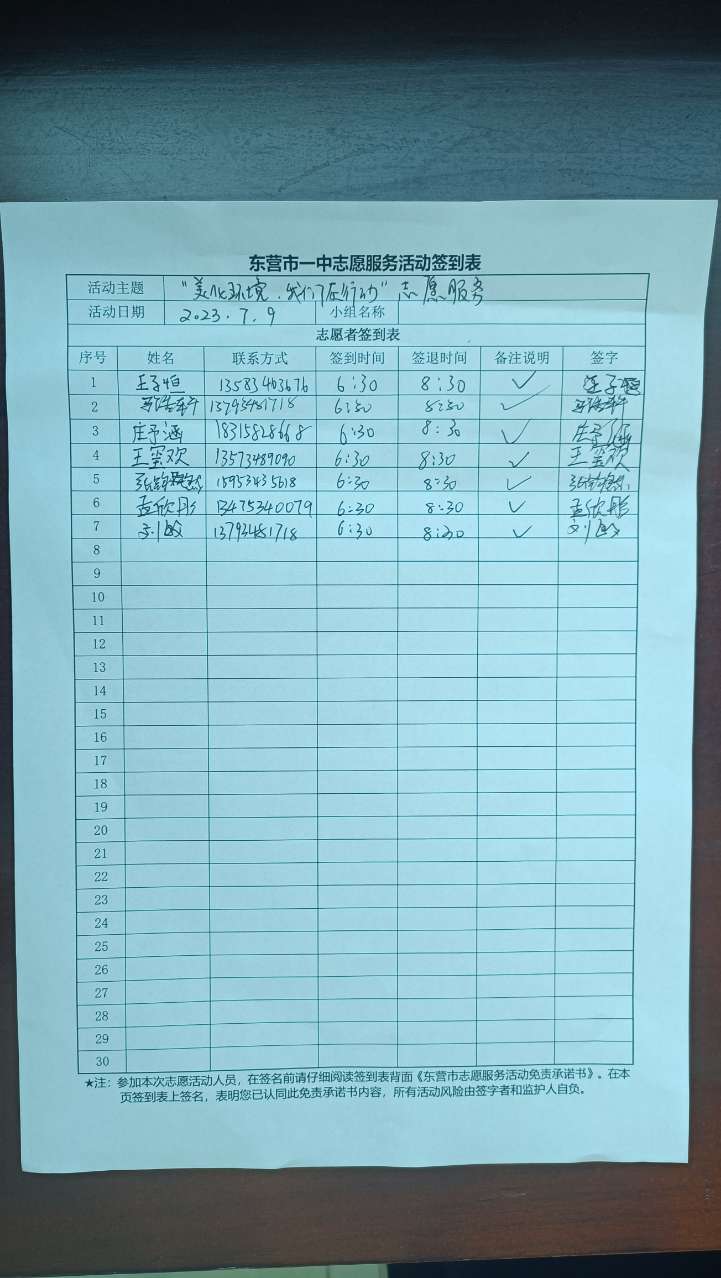 东营市一中志愿服务活动签到表
活动主题 "美化环境,我们在行动"志愿服务
活动日期 2023.7.9 小组名称
志愿者签到表
序号 姓名 联系方式 签到时间 签退时间 备注说明 签字
1 王子恒 13583403676 6:30 8:30 ✓ 王子恒
2 13793481718 6:30 8:30 ✓
3 庄予涵 18315828668 6:30 8:30 ✓ 庄予涵
4 王奕欢 13573489090 6:30 8:30 ✓ 王奕欢
5 15953435618 6:30 8:30 ✓
6 孟欣彤 13475340079 6:30 8:30 ✓ 孟欣彤
7 刘敏 13793481718 6:30 8:30 ✓ 刘敏
8
9
10
11
12
13
14
15
16
17
18
19
20
21
22
23
24
25
26
27
28
29
30
★注:参加本次志愿活动人员,在签名前请仔细阅读签到表背面《东营市志愿服务活动免责承诺书》。在本
页签到表上签名,表明您已认同此免责承诺书内容,所有活动风险由签字者和监护人自负。